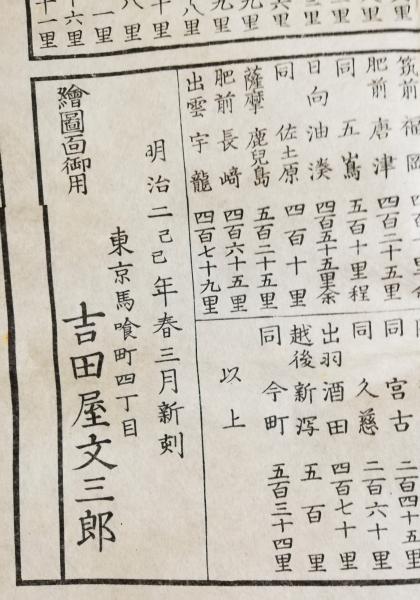 八里
十里
一里
十六里
十一里
筑前 福岡
肥前 唐津 四百二十五里
同 五嶌 五百十里程
日向 油湊 四百五十五里余
同 佐土原 四百十里
薩摩 鹿兒島 五百二十五里
肥前 長﨑 四百六十五里
出雲 宇龍 四百七十九里
同 宮古 二百四十五里
同 久慈 二百六十里
出羽 酒田 四百七十里
越後 新泻 五百里
同 今町 五百三十四里
以上
明治二己巳年春三月新刻
東京馬喰町四丁目
吉田屋文三郎
繪圖面御用